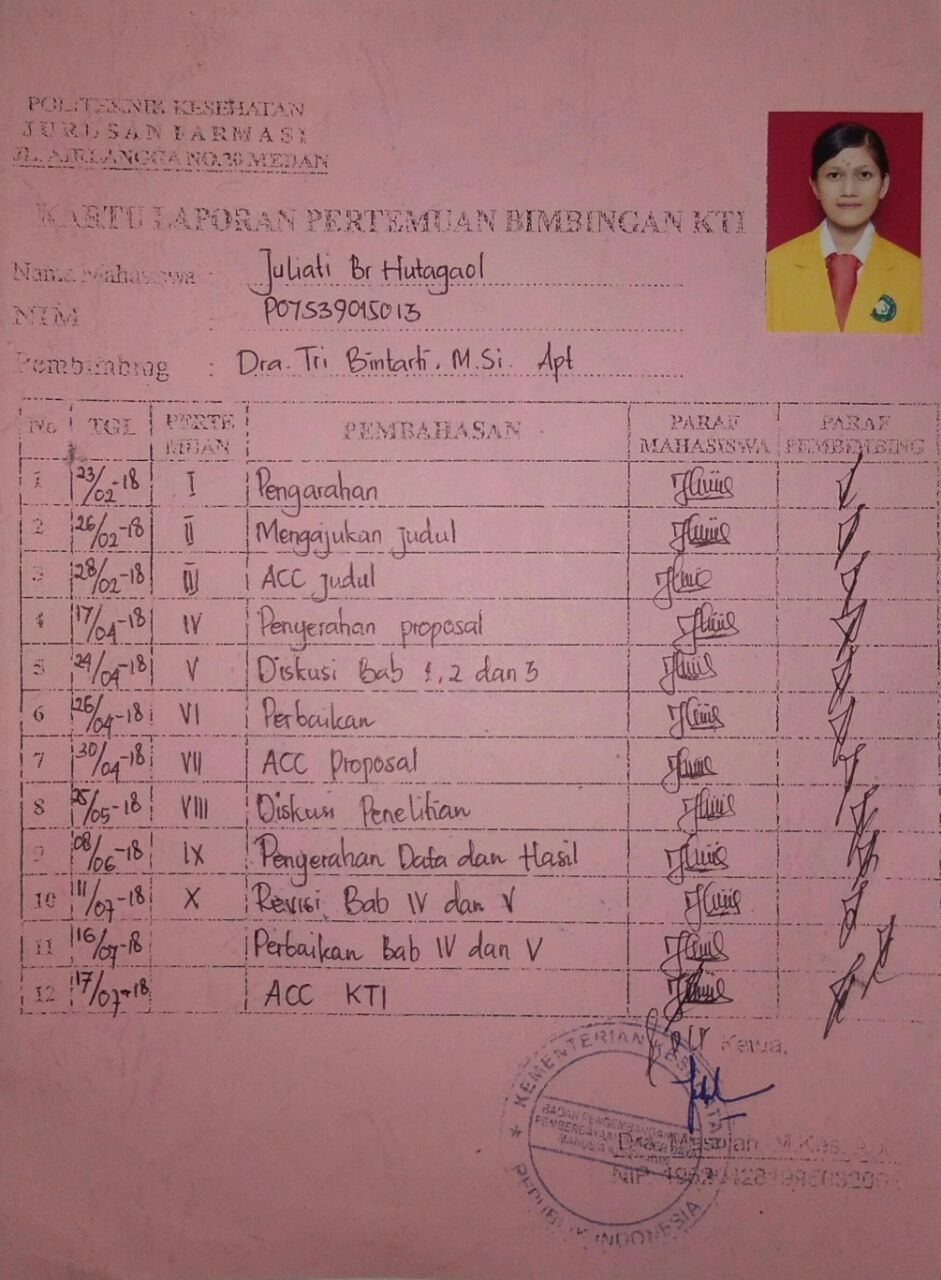 POLITEKNIK KESEHATAN
JURUSAN FARMASI
JL. AIRLANGGA NO.20 MEDAN
KARTU LAPORAN PERTEMUAN BIMBINGAN KTI
Nama Mahasiswa : Juliati Br Hutagaol
NIM : P07539015013
Pembimbing : Dra. Tri Bintarti, M.Si. Apt
No TGL PERTE MUAN PEMBAHASAN PARAF MAHASISWA PARAF PEMBIMBING
1 23/02-18 I Pengarahan
2 26/02-18 II Mengajukan judul
3 28/02-18 III ACC judul
4 17/04-18 IV Penyerahan proposal
5 24/04-18 V Diskusi Bab 1, 2 dan 3
6 26/04-18 VI Perbaikan
7 30/04-18 VII ACC Proposal
8 25/05-18 VIII Diskusi Penelitian
9 08/06-18 IX Penyerahan Data dan Hasil
10 11/07-18 X Revisi Bab IV dan V
11 16/07-18 Perbaikan Bab IV dan V
12 17/07-18 ACC KTI
Ketua,
KEMENTERIAN
BADAN PENGEMBANGAN
MANUSIA
REPUBLIK INDONESIA
NIP.